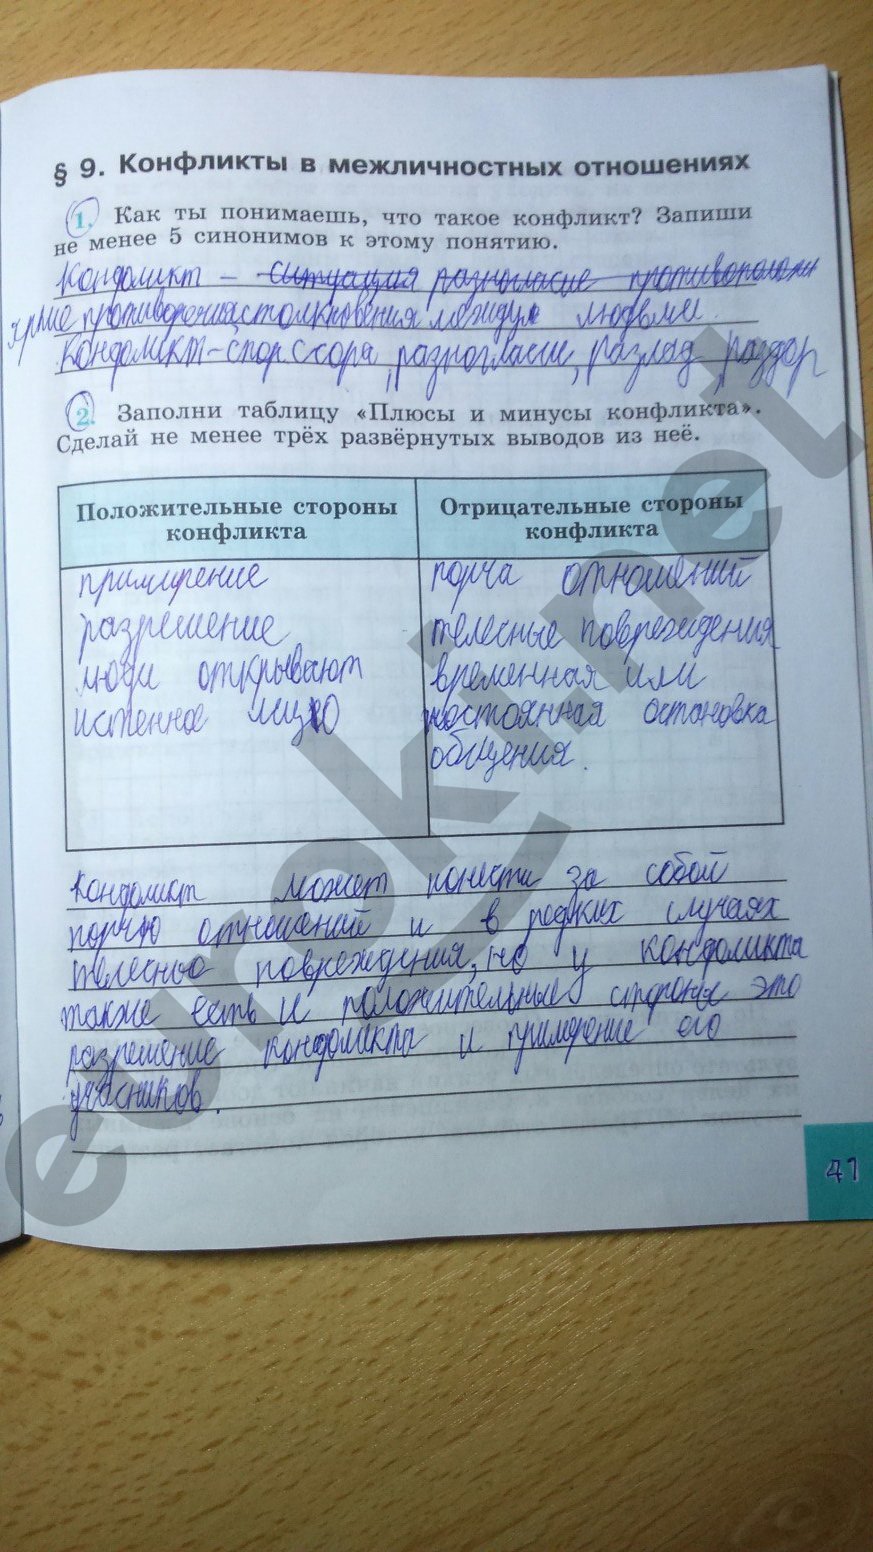 § 9. Конфликты в межличностных отношениях
1. Как ты понимаешь, что такое конфликт? Запиши
не менее 5 синонимов к этому понятию.
Конфликт – ситуация разногласие противополож
яркие противоречия, столкновения между людьми.
Конфликт-спор, ссора, разногласие, разлад, раздор
2. Заполни таблицу «Плюсы и минусы конфликта».
Сделай не менее трёх развёрнутых выводов из неё.
Положительные стороны
конфликта
Отрицательные стороны
конфликта
примирение
разрешение
люди открывают
истенное лицо
порча отношений
телесные повреждения
временная или
постоянная остановка
общения.
Конфликт может понести за собой
порчю отношений и в редких случаях
телесные повреждения, но у конфликта
также есть и положительные стороны это
разрешение конфликта и примерение его
учасников.
41
eurokinet